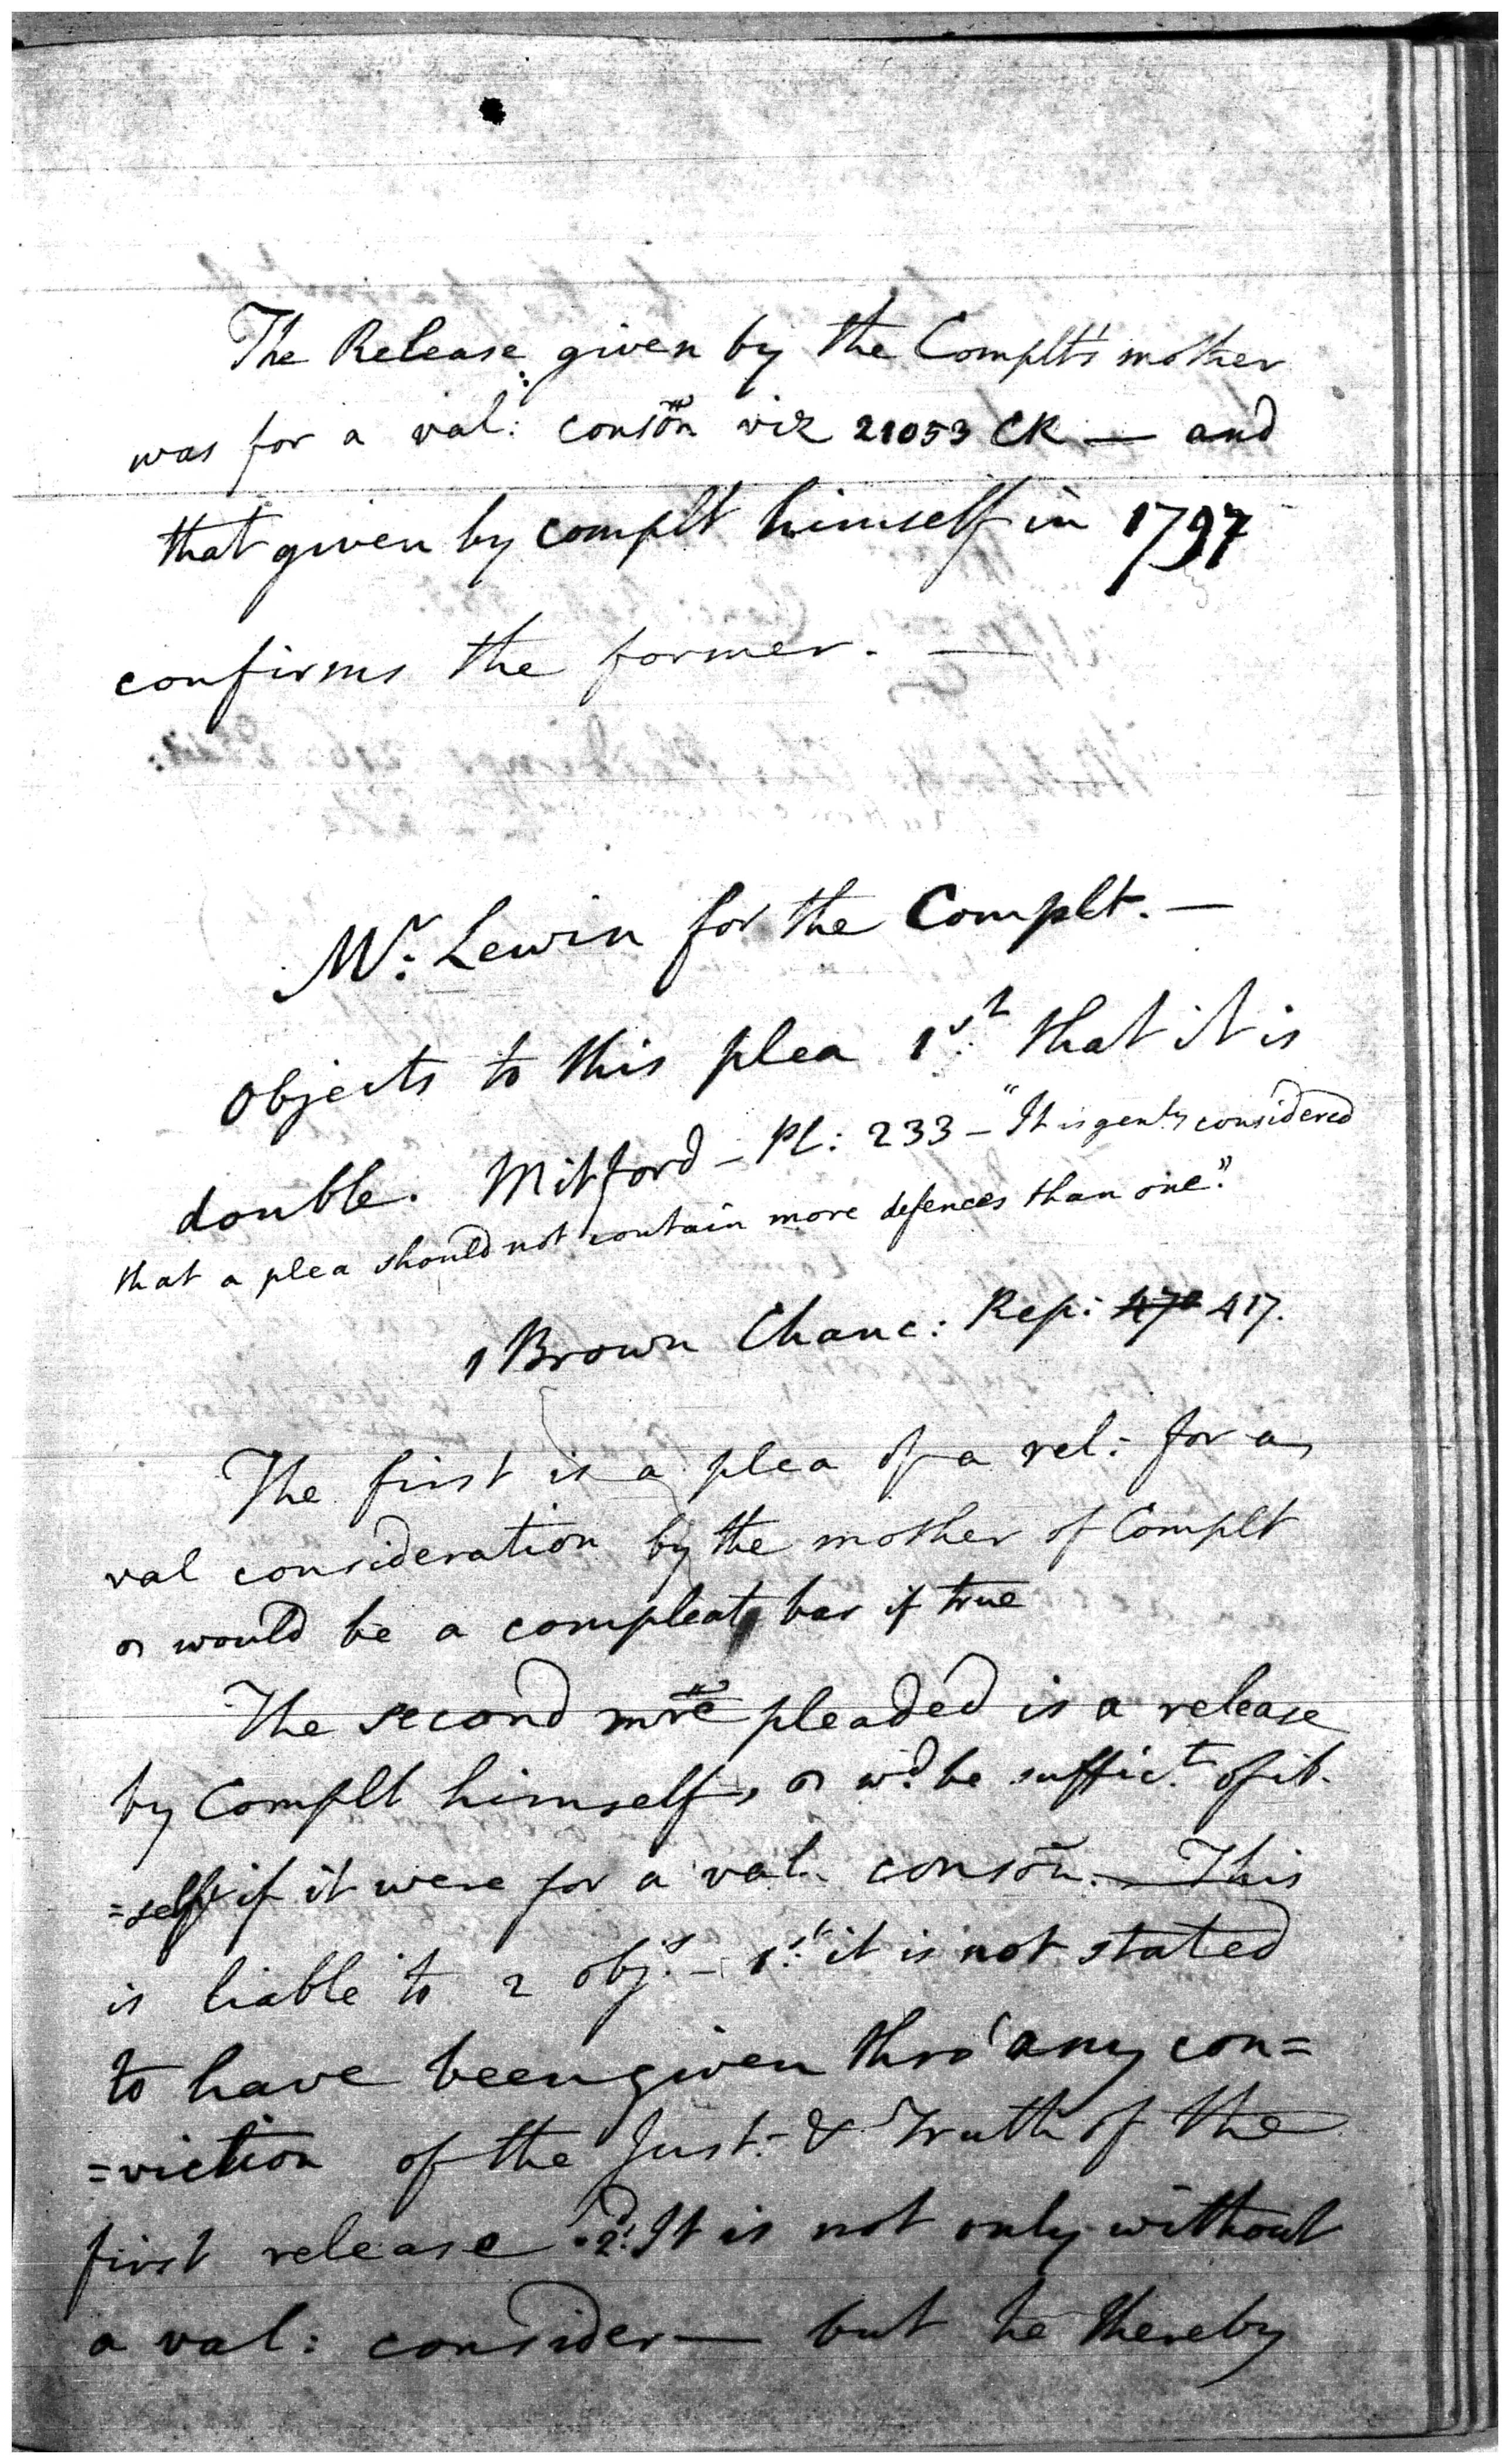 The Release given by the Complt's mother
was for a val: consõn viz 21053 CR — and
that given by complt himself in 1797
confirms the former. —
Mr. Lewin for the Complt. —
objects to this plea 1st. that it is
double. Mitford — Pl: 233 — "It is genly considered
that a plea should not contain more defences than one".
1 Brown Chanc: Rep: 470 417.
The first is a plea of a rel: for a
val consideration by the mother of Complt
& would be a compleat bar if true
The second mre pleaded is a release
by Complt himself, & wd. be suffict. of it-
=self if it were for a val. consõn. — This
is liable to 2 objs. — 1st. it is not stated
to have been given thro' any con=
=viction of the Just: & Truth of the
first release. 2d. It is not only without
a val: consider — but he thereby